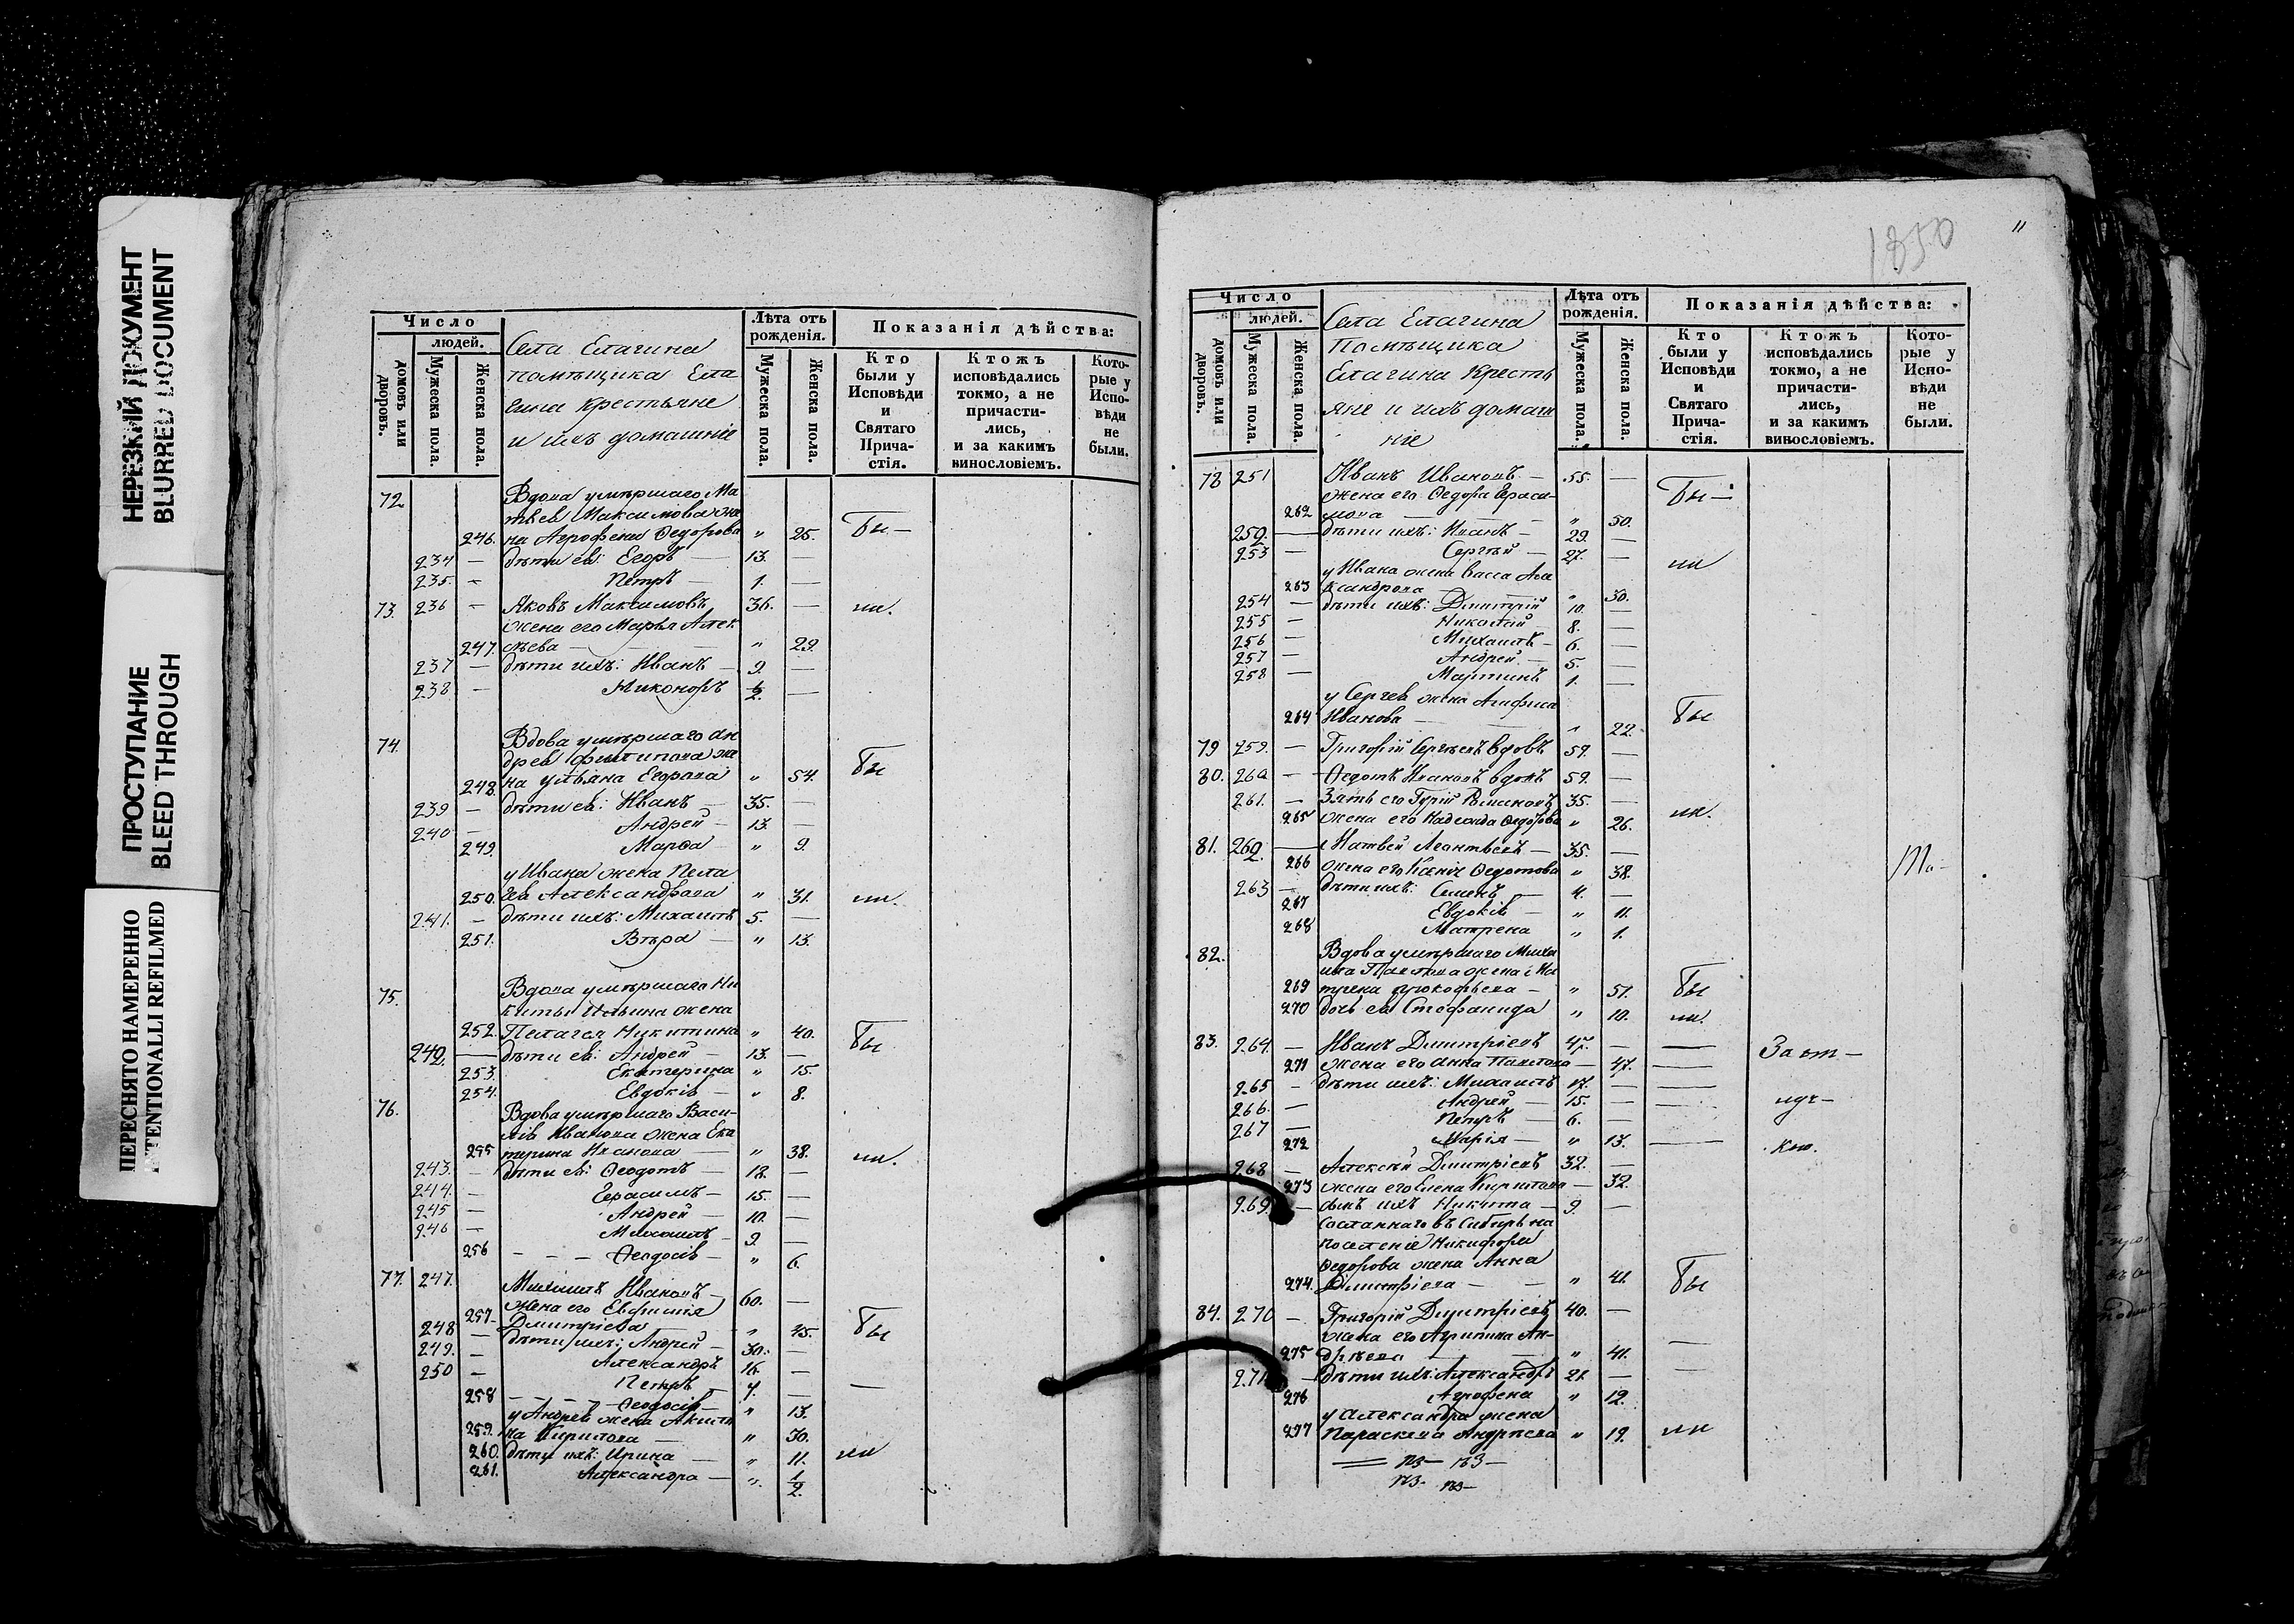 НЕРЕЗКИЙ ДОКУМЕНТ
BLURRED DOCUMENT
ПРОСТУПАНИЕ
BLEED THROUGH
ПЕРЕСНЯТО НАМЕРЕННО
INTENTIONALLI REFILMED
Число
людей.
домовъ или дворовъ.
Мужеска пола.
Женска пола.
Села Елагина
помѣщика Ела
гина крестьяне
и ихъ домашніе
Лѣта отъ рожденія.
Мужеска пола.
Женска пола.
Показанія дѣйства:
Кто были у Исповѣди и Святаго Причастія.
Ктожъ исповѣдались токмо, а не причастились, и за какимъ винословіемъ.
Которые у Исповѣди не были.
72 Вдова умѣршаго Ма
твея Максимова же
246. на Агрофена Ѳедорова " 25. Бы—
234 — дѣти ея: Егоръ — 13. —
235. — Петръ — 1. —
73. 236 — Яковъ Максимовъ 36. — ли.
жена его Марья Алек
247. сѣева — " 29.
237 — дѣти ихъ: Иванъ — 9. —
238 — Никоноръ 1/2. —
74. Вдова умѣршаго Ан
дрея Филипова же
248. на Ульяна Егорова " 54. Бы
239 — дѣти ея: Иванъ — 35. —
240 — Андрей — 13. —
249. Марѳа — " 9.
у Ивана жена Пела
250. гея Александрова " 31. ли.
241. — дѣти ихъ: Михаилъ 5. —
251. Вѣра — " 13.
75. Вдова умѣршаго Ни
киты Ильина жена
252. Пелагея Никитина " 40. Бы
242. — дѣти ея: Андрей — 13. —
253. Екатерина " 15.
254. Евдокія — " 8.
76. Вдова умѣршаго Васи-
лія Иванова жена Ека
255 терина Иванова — " 38. ли.
243. — дѣти ея: Ѳеодотъ — 18. —
244. — Герасимъ — 15. —
245 — Андрей — 10. —
246 — Михаилъ — 9. —
256 — — — Ѳеодосія — " 6.
77. 247. Михаилъ Ивановъ — 60. —
жена его Евфимія
257. Дмитріева " 45. Бы
248 — дѣти ихъ: Андрей — 30. —
249. — Александръ 16. —
250 — Петръ — 7. — —
258 — — — Ѳеодосія — " 13.
у Андрея жена Акили
259. на Кирилова — " 30.
260. дѣти ихъ: Ирина — " 11. ли
261. Александра — " 1/2.
1850
11
Число
людей.
домовъ или дворовъ.
Мужеска пола.
Женска пола.
Села Елагина
Помѣщика
Елагина Кресть
яне и ихъ домаш
ніе
Лѣта отъ рожденія.
Мужеска пола.
Женска пола.
Показанія дѣйства:
Кто были у Исповѣди и Святаго Причастія.
Ктожъ исповѣдались токмо, а не причастились, и за какимъ винословіемъ.
Которые у Исповѣди не были.
78 251 Иванъ Ивановъ — 55. —
жена его Ѳедора Гераси- Бы—
262 мова — " 50.
252. — дѣти ихъ: Иванъ — 29. —
253 — Сергѣй — 27. — ли
у Ивана жена Васса Але
263 ксандрова " 30.
254 — дѣти ихъ: Дмитрій 10. —
255 — Николай — 8. —
256 — Михаилъ — 6. —
257 — Андрей — 5. —
258 — Мартинъ 1. —
у Сергея жена
264 Иванова — " 22. Бы
79 259. — Григорій Сергѣевъ вдовъ 59. —
80. 260 — Ѳедотъ Ивановъ вдовъ 59. —
261. — Зять его Гурій 35. —
265 жена его Надежда Ѳедорова " 26. ли.
81. 262. — Матвей Леонтьевъ — 35. —
266 жена его Ксенія Ѳедотова " 38. То—
263 — дѣти ихъ: Семенъ — 4. —
267 Евдокія — " 11.
268 Матрена " 1.
82. Вдова умѣршаго Миха
ила Павлова жена Ма
269 трена Прокофьева — " 51. Бы
270 дочь ея Стефанида " 10. ли.
83. 264. — Иванъ Дмитріевъ 47. — — За от—
271 жена его Анна Павлова — 47. —
265 — дѣти ихъ: Михаилъ 17. — —
266. — Андрей — 15. — — луч—
267 — Петръ — 6. —
272 Марія — " 13. — кою.
268 — Алексѣй Дмитріевъ 32. —
273 жена его Елена Кирилова — 32.
269. — сынъ ихъ Никита — 9. —
Сосланнаго въ Сибирь на
поселеніе Никифора
Ѳедорова жена Анна
274. Димитріева — — " 41. Бы
84. 270 — Григорій Дмитріевъ 40. —
жена его Агрипина Ан-
275 дрѣева — " 41. —
271 — дѣти ихъ: Александръ 21. — —
276 Агрофена " 12.
у Александра жена
277 Параскева Андрѣева " 19. ли